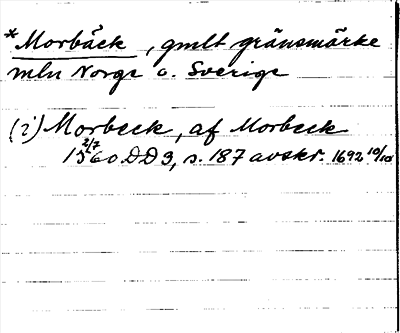 *Morbäck, gmlt gränsmärke
mln Norge o. Sverige
(i) Morbeck, af Morbeck
1560 2/7 DD 3, s. 187 avskr. 1692 10/10